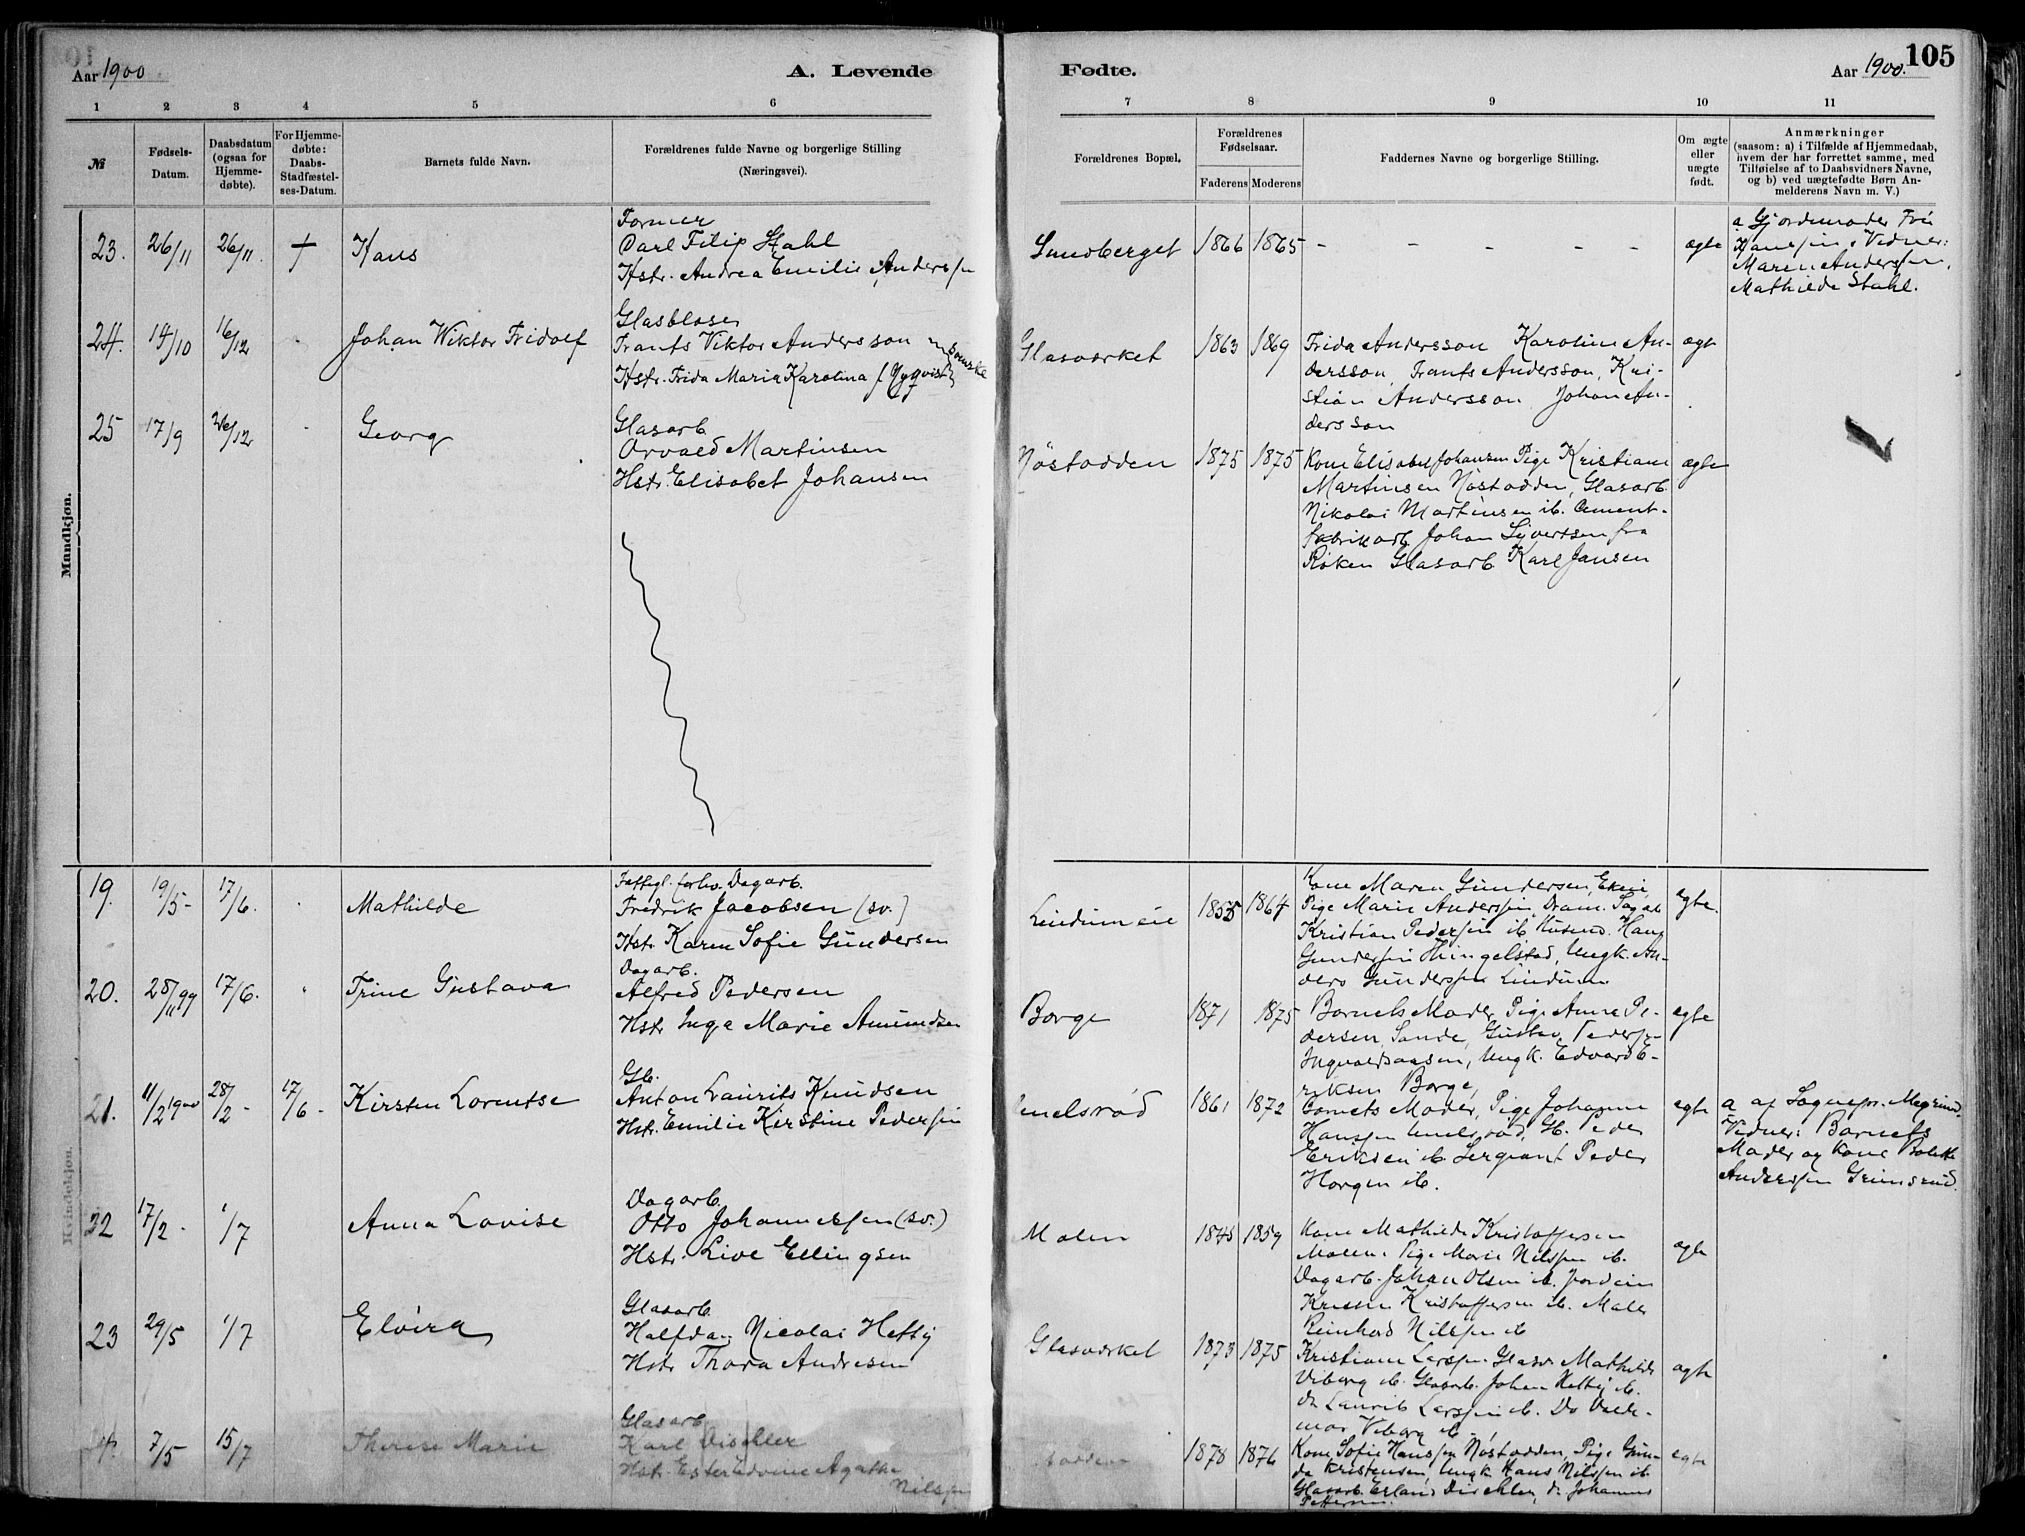 Aar 1900
A. Levende
Fødte.
Aar 1900.
105
1 2 3 4 5 6 7 8 9 10 11
№
Fødsels-Datum.
Daabsdatum (ogsaa for Hjemme-døbte).
For Hjemme-døbte: Daabs-Stadfæstel-ses-Datum.
Barnets fulde Navn.
Forældrenes fulde Navne og borgerlige Stilling
(Næringsvei).
Forældrenes Bopæl.
Forældrenes Fødselsaar.
Faderens Moderens
Faddernes Navne og borgerlige Stilling.
Om ægte eller uægte født.
Anmærkninger
(saasom: a) i Tilfælde af Hjemmedaab,
hvem der har forrettet samme, med
Tilføielse af to Daabsvidners Navne,
og b) ved uægtefødte Børn An-
melderens Navn m. V.)
Mandkjøn.
23. 26/11 26/11. + Hans
Former
Carl Filip Stahl
Hstr. Andrea Emilie Anderssen
Sundberget 1866 1865 - - - - - ægte
a Gjordemoder Fru
Hanssen, Vidner:
Maren Anderssen,
Mathilde Stahl.
24. 14/10 16/12 Johan Wiktor Fridolf
Glasblaser
Frants Viktor Andersson
Hstr. Frida Maria Karolina f.
svenske
Glasværket 1863 1869
Frida Andersson Karoline An-
dersson, Frants Andersson, Kri-
stian Andersson Johan An-
dersson
ægte
25 17/9 26/12 Georg
Glasarb
Orvald Martinsen
Hstr. Elisabet Johansen
Nöstodden 1875 1875
Kone Elisabet Johansen Pige Kristiane
Martinsen Nöstodden, Glasarb.
Nikolai Martinsen ib. Cement-
fabrikarb. Johan Syvertsen fra
Röken Glasarb Karl Jansen
ægte
Kvindekjøn.
19. 19/5- 17/6. Mathilde
Fattigl. forhv. Dagarb.
Fredrik Jacobsen (sv.)
Hstr Karen Sofie Gundersen
Lindum eie 1855 1864
Kone Maren Gundersen,
Pige Marie Anderssen, Dram.
Kristian Pederssen ib Husmd. Hans
Gunderssen Hingelstad, Ungk. An-
ders Gunderssen Lindum
egte.
20. 28/11 99 17/6. Trine Gustava
Dagarb.
Alfred Pedersen
Hstr Inga Marie Amundsen
Borge 1871 1875
Barnets Moder, Pige Anna Pe-
dersen, Sande, Gustav Pederssen
Ingvaldsaasen, Ungk. Edvard E-
riksen Borge,
egte
21. 11/2 1900 28/2 - 17/6 - Kirsten Lorentse
Gb.
Anton Laurits Knudsen
Hstr. Emilie Kirstine Pederssen
1861 1872
Barnets Moder, Pige Johanne
Hanssen Gb. Peder
Eriksen ib. Sergeant Peder
Horgen ib.
egte
a af Sognepr. Megrund.
Vidner: Barnets
Moder og Kone Bolette
Anderssen Grimsrud.
22 17/2 - 1/7 Anna Lovise
Dagarb
Otto Johannessen (sv.)
Hstr. Live Ellingsen
Molen 1845 1859
Kone Mathilde Kristoffersen
Molen. Pige Marie Nilssen ib.
Dagarb. Johan Olsen ib.
Kristoffersen ib. Maler
Reinhard Nilssen ib
ægte
23 29/5 1/7 Elvira
Glasarb.
Halfdan Nicolai Hetty
Hstr Thora Andresen
Glasværket 1873 1875
Kristiane Larssen Glasv. Mathilde
Viborg ib. Glasarb. Johan Hetty ib.
Do Laurits Larssen ib. Do Valde-
mar Viborg ib.
ægte
7/5 15/7 Therese Marie
Glasarb
Karl Dischler
Hstr. Ester Edvine Agathe
Nilssen
1878 1876
Kone Sofie Hanssen Nöstodden, Pige Gun-
da Kristensen, Ungk Hans Nilssen ib
Glasarb. Erland Dischler, do Johannes
Pettersen.
egte